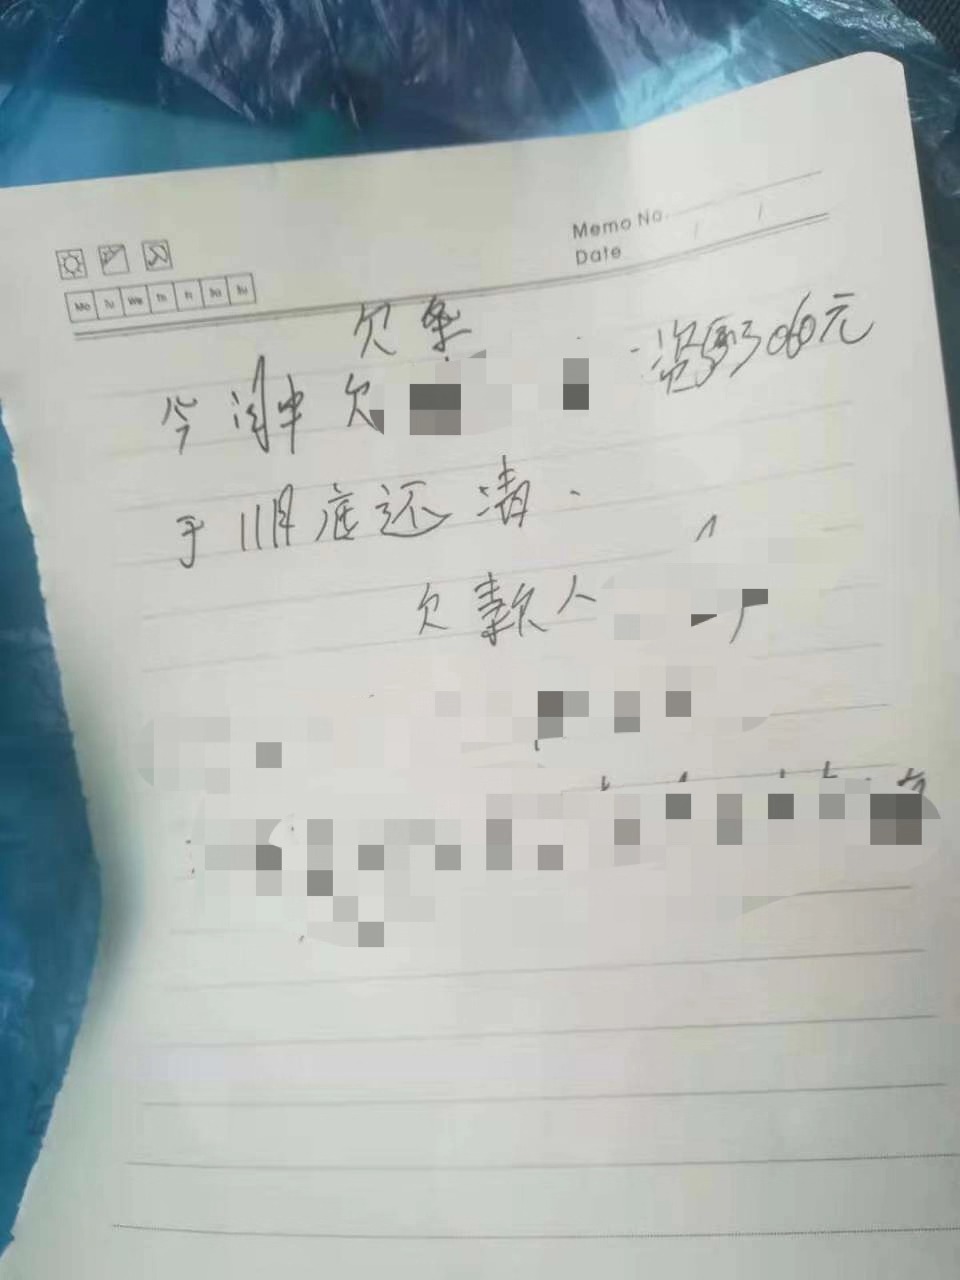 Memo No.
Date / /
Mo Tu We Th Fr Sa Su
欠条
今 欠 资 3060元
于11月底还清.
欠款人